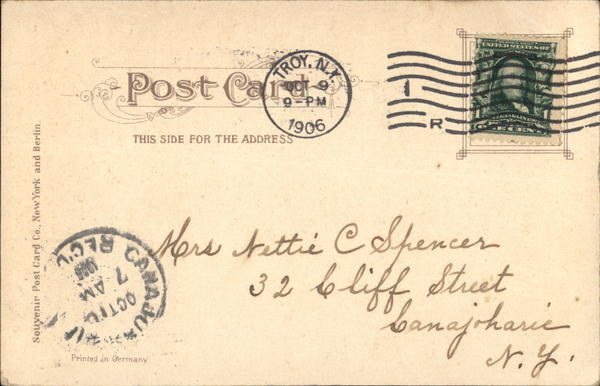 Post Card
THIS SIDE FOR THE ADDRESS
TROY, N.Y.
OCT 9
9-PM
1906
I
R
UNITED STATES OF
FRANKLIN
ONE CENT
Mrs Nettie C Spencer
32 Cliff Street
Canajoharie
N.Y.
CANAJO
REC'D
7 AM
OCT 10
Souvenir Post Card Co., New York and Berlin.
Printed in Germany